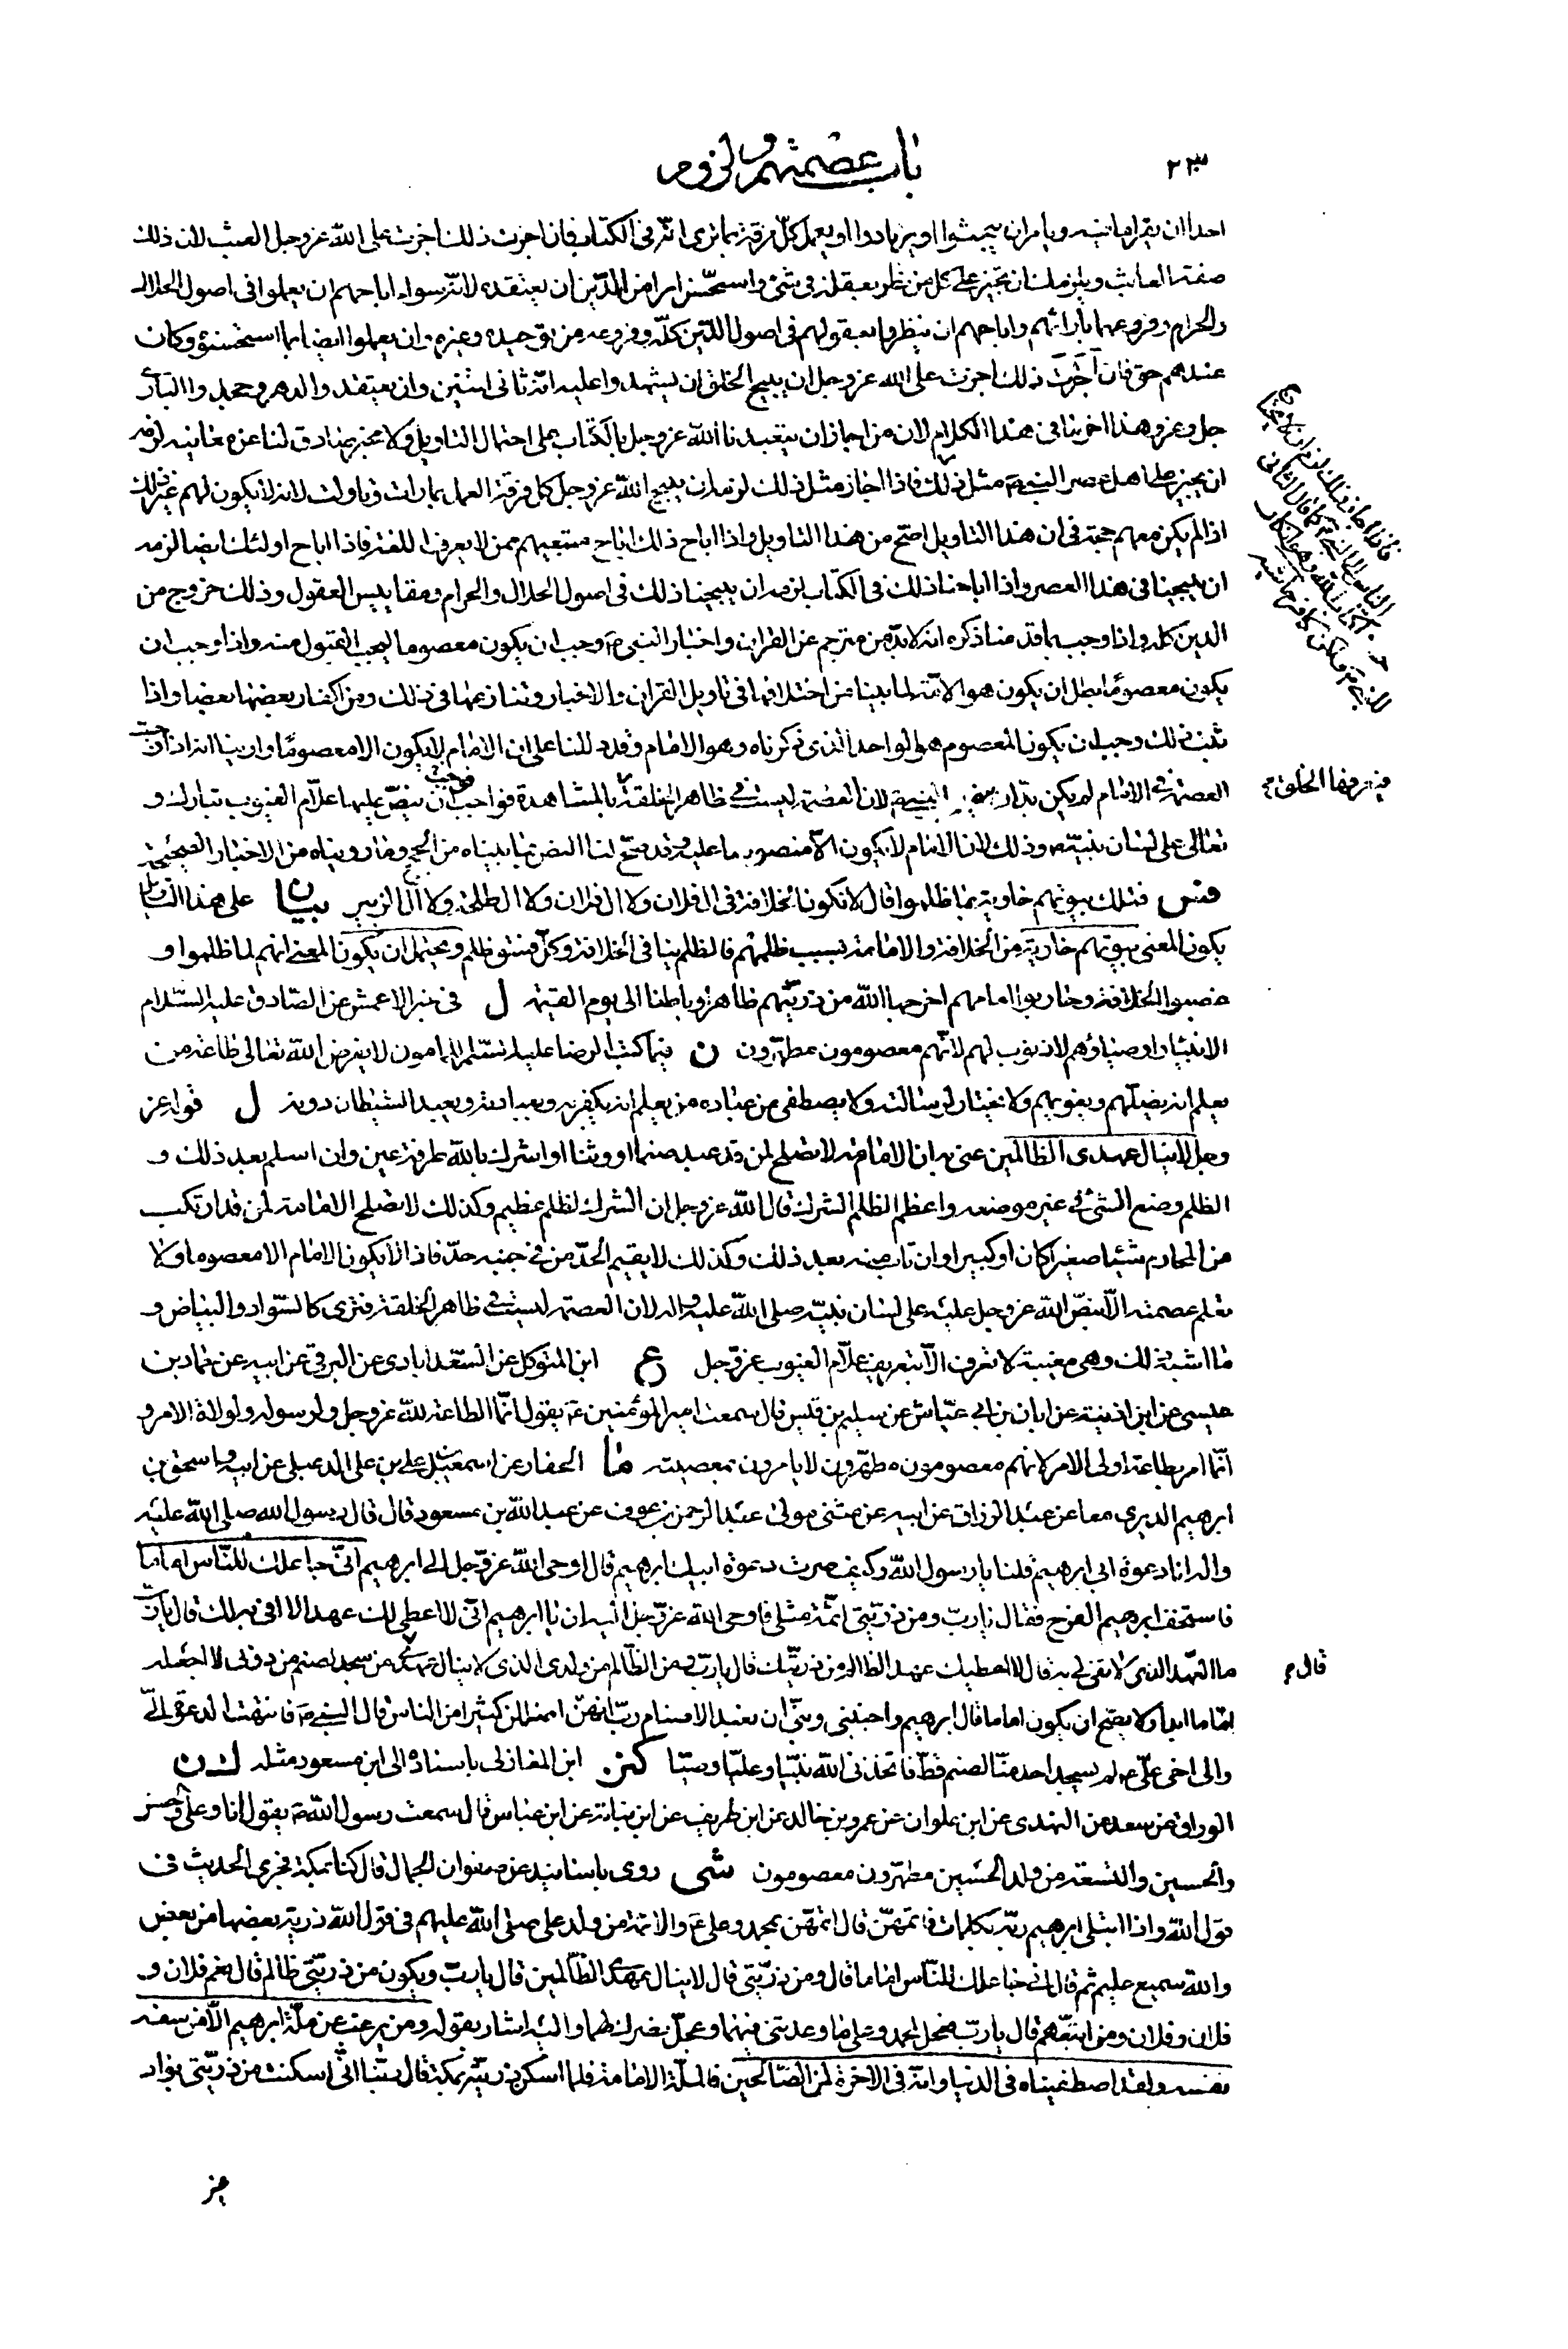 باب عصمتهم ولزوم
٢٣٠
احدا ان يقرا ما فيه ويامر ان يبحثوا او يرتادوا او يعمل كل فرقة بما ترى انه في الكتاب فان اجزت ذلك اجزت على الله عز وجل العبث لان ذلك
صفة العابث ويلزمك ان تجيز على كل من نظر بعقله في شئ واستحسن امرا من الدين ان يعتقده لانه سواء اباحهم ان يعملوا في اصول الحلال
والحرام وفروعهما بارائهم واباحهم ان ينظروا بعقولهم في اصول الدين كله وفروعه من توحيده وغيره وان يعملوا ايضا بما استحسنوه وكان
عندهم حق فان اجزت ذلك اجزت على الله عز وجل ان يبيح الخلق ان يشهدوا عليه انه ثاني اثنين وان يعتقدوا الدهر وجحدوا البارئ
جل وعز وهذا اخر ما في هذا الكلام لان من اجاز ان يتعبدنا الله عز وجل بالكتاب على احتمال التاويل ولا مخبر صادق لنا عن معانيه لزمه
ان يجيز على اهل عصر النبي ص مثل ذلك فاذا اجاز مثل ذلك لزمه ان يبيح الله عز وجل كل فرقة العمل بما رات وتاولت لانه لا يكون لهم غير ذلك
اذا لم يكن معهم حجة في ان هذا التاويل اصح من هذا التاويل واذا اباح ذلك اباح متبعيهم ممن لا يعرف اللغة فاذا اباح اولئك ايضا لزمه
ان يبيحنا في هذا العصر واذا اباحنا ذلك في الكتاب لزمه ان يبيحنا ذلك في اصول الحلال والحرام ومقاييس العقول وذلك خروج من
الدين كله واذا وجب بما قدمنا ذكره انه لا بد من مترجم عن القران واخبار النبي ص وجب ان يكون معصوما ليجب القبول منه واذا وجب ان
يكون معصوما بطل ان يكون هو الامة لما بينا من اختلافها في تاويل القران والاخبار وتنازعها في ذلك ومن اكفار بعضها بعضا واذا
ثبت ذلك وجب ان يكون المعصوم هو الواحد الذي ذكرناه وهو الامام وقد دللنا على ان الامام لا يكون الا معصوما وارينا انه اذا وجبت
العصمة في الامام لم يكن بد ان ينص النبي ص لان العصمة ليست في ظاهر الخلقة بالمشاهدة فواجب ان ينص عليها علام الغيوب تبارك و
فيعرفها الخلق صح
تعالى على لسان نبيه ص وذلك لان الامام لا يكون الا منصوصا عليه وقد صح لنا النص بما بيناه من الحجج وما رويناه من الاخبار الصحيحة
فس فتلك بيوتهم خاوية بما ظلموا قال لا تكون الخلافة في ال فلان ولا ال فلان ولا ال طلحة ولا ال الزبير بيان على هذا التاويل
يكون المعنى بيوتهم خاوية من الخلافة والامامة بسبب ظلمهم فالظلم ينافي الخلافة وكل فسق ظلم ويحتمل ان يكون المعنى انهم لما ظلموا و
غصبوا الخلافة وحاربوا امامهم اخرجها الله من ذريتهم ظاهرا وباطنا الى يوم القيمة ل في خبر الاعمش عن الصادق عليه السلام
الانبياء واوصياؤهم لا ذنوب لهم لانهم معصومون مطهرون ن فيما كتب الرضا عليه السلام للمامون لا يفرض الله تعالى طاعة من
يعلم انه يضلهم ويغويهم ولا يختار لرسالته ولا يصطفي من عباده من يعلم انه يكفر به وبعبادته ويعبد الشيطان دونه ل قوله عز
وجل لا ينال عهدي الظالمين عنى به ان الامامة لا تصلح لمن قد عبد صنما او وثنا او اشرك بالله طرفة عين وان اسلم بعد ذلك و
الظلم وضع الشئ في غير موضعه واعظم الظلم الشرك قال الله عز وجل ان الشرك لظلم عظيم وكذلك لا تصلح الامامة لمن قد ارتكب
من المحارم شيئا صغيرا كان او كبيرا وان تاب منه بعد ذلك وكذلك لا يقيم الحد من في جنبه حد فاذا لا يكون الامام الا معصوما ولا
تعلم عصمته الا بنص الله عز وجل عليه على لسان نبيه صلى الله عليه واله لان العصمة ليست في ظاهر الخلقة فترى كالسواد والبياض و
ما اشبه ذلك وهي مغيبة لا تعرف الا بتعريف علام الغيوب عز وجل ع ابن المتوكل عن السعدابادي عن البرقي عن ابيه عن حماد بن
عيسى عن ابن اذينة عن ابان بن ابي عياش عن سليم بن قيس قال سمعت امير المؤمنين ع يقول انما الطاعة لله عز وجل ولرسوله ولولاة الامر و
انما امر بطاعة اولي الامر لانهم معصومون مطهرون لا يامرون بمعصيته ما الحفار عن اسمعيل بن علي بن علي الدعبلي عن ابيه واسحق بن
ابرهيم الدبري معا عن عبد الرزاق عن ابيه عن مثنى مولى عبد الرحمن بن عوف عن عبد الله بن مسعود قال قال رسول الله صلى الله عليه
واله انا دعوة ابي ابرهيم قلنا يا رسول الله وكيف صرت دعوة ابيك ابرهيم قال اوحى الله عز وجل الى ابرهيم اني جاعلك للناس اماما
فاستخف ابرهيم الفرح فقال يا رب ومن ذريتي ائمة مثلي فاوحى الله عز وجل اليه ان يا ابرهيم اني لا اعطي لك عهدا لا افي به لك قال يا رب
ما العهد الذي لا تفي لي به قال لا اعطيك عهد الظالم من ذريتك قال يا رب ومن الظالم من ولدي الذي لا ينال عهدك من سجد لصنم من دوني لا اجعله
قال م
اماما ابدا ولا يصح ان يكون اماما قال ابرهيم واجنبني وبني ان نعبد الاصنام رب انهن اضللن كثيرا من الناس قال النبي ص فانتهت الدعوة الي
والى اخي علي ع لم يسجد احد منا لصنم قط فاتخذني الله نبيا وعليا وصيا كنز ابن المغازلي باسناده الى ابن مسعود مثله ك ن
الوراق عن سعد عن النهدي عن ابن علوان عن عمرو بن خالد عن ابن طريف عن ابن نباتة عن ابن عباس قال سمعت رسول الله ص يقول انا وعلي والحسن
والحسين والتسعة من ولد الحسين مطهرون معصومون شى روى باسانيد عن صفوان الجمال قال كنا بمكة فجرى الحديث في
قول الله واذ ابتلى ابرهيم ربه بكلمات فاتمهن قال اتمهن بمحمد وعلي ع والائمة من ولد علي صلى الله عليهم في قول الله ذرية بعضها من بعض
والله سميع عليم ثم قال اني جاعلك للناس اماما قال ومن ذريتي قال لا ينال عهدي الظالمين قال يا رب ويكون من ذريتي ظالم قال نعم فلان و
فلان وفلان ومن اتبعهم قال يا رب فعجل لمحمد وعلي ما وعدتني فيهما وعجل نصرك لهما واليه اشار بقوله ومن يرغب عن ملة ابرهيم الا من سفه
نفسه ولقد اصطفيناه في الدنيا وانه في الاخرة لمن الصالحين فالملة الامامة فلما اسكن ذريته بمكة قال ربنا اني اسكنت من ذريتي بواد
غير